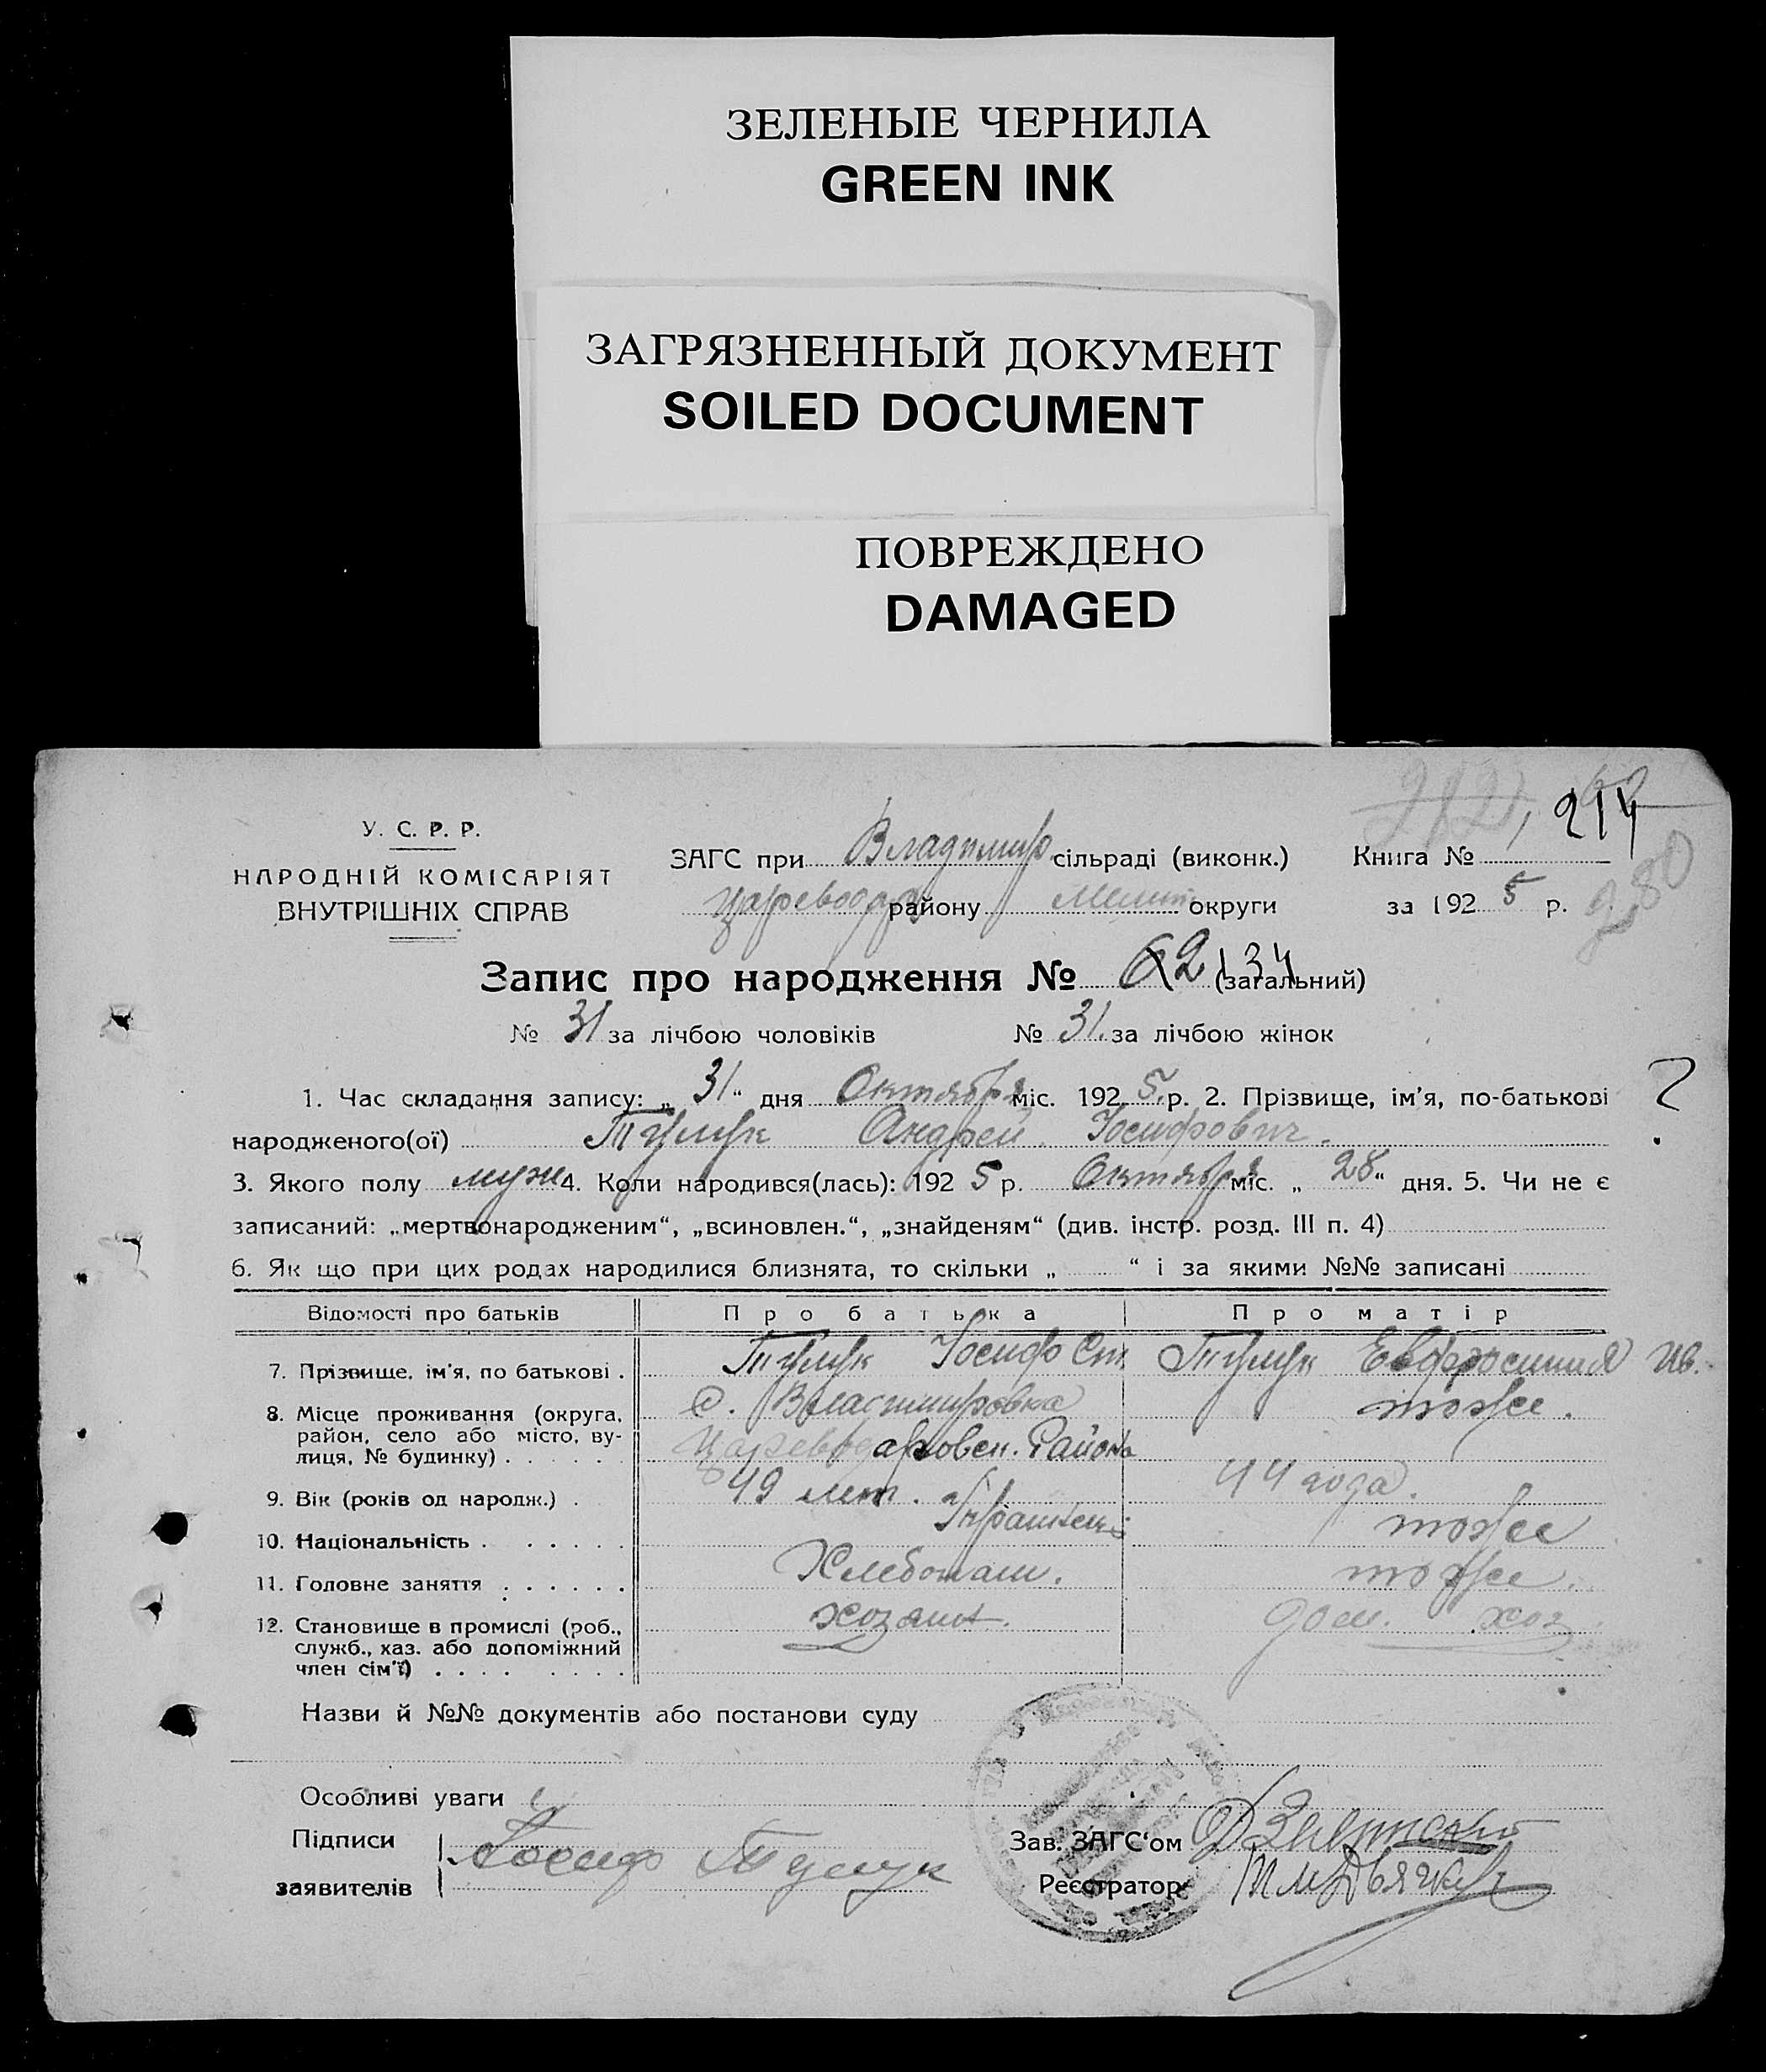 ЗЕЛЕНЫЕ ЧЕРНИЛА
GREEN INK
ЗАГРЯЗНЕННЫЙ ДОКУМЕНТ
SOILED DOCUMENT
ПОВРЕЖДЕНО
DAMAGED
214
280
У. С. Р. Р.
НАРОДНІЙ КОМІСАРІЯТ
ВНУТРІШНІХ СПРАВ
ЗАГС при Владимир сільраді (виконк.) Книга №
району Мелит округи за 1925 р.
Запис про народження № 62 134 (загальний)
№ 31 за лічбою чоловіків № 31. за лічбою жінок
1. Час складання запису: „31“ дня Октября міс. 1925 р. 2. Прізвище, ім'я, по-батькові
народженого(ої) Тулук Андрей Іосифович.
3. Якого полу муж 4. Коли народився(лась): 1925 р. Октября міс. „28“ дня. 5. Чи не є
записаний: „мертвонародженим“, „всиновлен.“, „знайденям“ (див. інстр. розд. III п. 4)
6. Як що при цих родах народилися близнята, то скільки „ “ і за якими №№ записані
Відомості про батьків Про батька Про матір
7. Прізвище, ім'я, по батькові . Тулук Іосиф Ст. Тулук Евфросиния Ив.
8. Місце проживання (округа, район, село або місто, вулиця, № будинку) . . . . . . с. Владимировка тоже.
Района
9. Вік (років од народж.) . 49 лет. 44 года.
10. Національність . . . . . . тоже
11. Головне заняття . . . . . . Хлебопаш. тоже.
12. Становище в промислі (роб., служб., хаз. або допоміжний член сім'ї) . . . . . . . . хозяин. дом. хоз.
Назви й №№ документів або постанови суду
Особливі уваги
Підписи
заявителів
Іосиф Тулук
Зав. ЗАГС'ом
Реєстратор